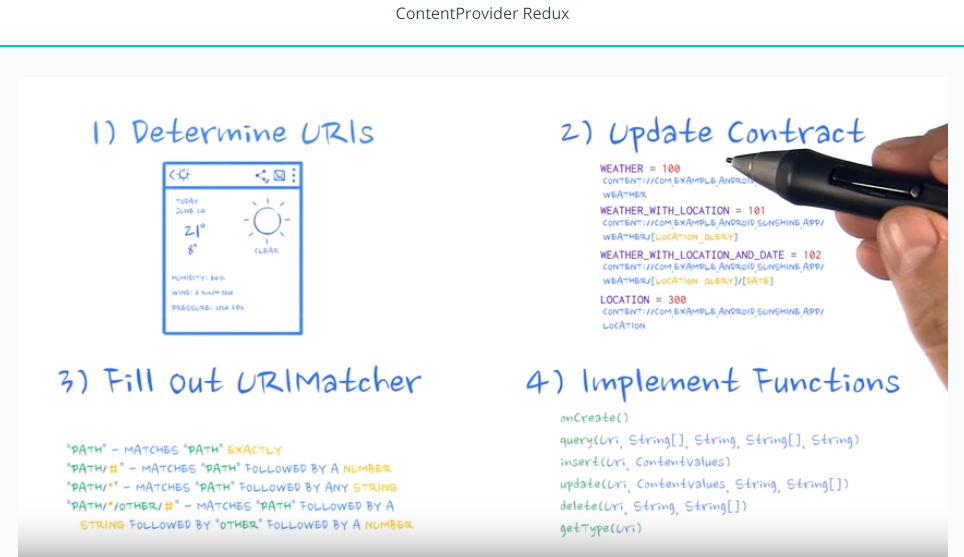 ContentProvider Redux
1) Determine URIs
TODAY
21°
8°
CLEAR
2) Update Contract
WEATHER = 100
CONTENT://COM.EXAMPLE.ANDROID
WEATHER
WEATHER_WITH_LOCATION = 101
CONTENT://COM.EXAMPLE.ANDROID.SUNSHINE.APP/
WEATHER/[LOCATION_QUERY]
WEATHER_WITH_LOCATION_AND_DATE = 102
CONTENT://COM.EXAMPLE.ANDROID.SUNSHINE.APP/
WEATHER/[LOCATION QUERY]/[DATE]
LOCATION = 300
CONTENT://COM.EXAMPLE.ANDROID.SUNSHINE.APP/
LOCATION
3) Fill out URIMatcher
"PATH" - MATCHES "PATH" EXACTLY
"PATH/#" - MATCHES "PATH" FOLLOWED BY A NUMBER
"PATH/*" - MATCHES "PATH" FOLLOWED BY ANY STRING
"PATH/*/OTHER/#" - MATCHES "PATH" FOLLOWED BY A
STRING FOLLOWED BY "OTHER" FOLLOWED BY A NUMBER
4) Implement Functions
onCreate()
query(Uri, String[], String, String[], String)
insert(Uri, ContentValues)
update(Uri, ContentValues, String, String[])
delete(Uri, String, String[])
getType(Uri)